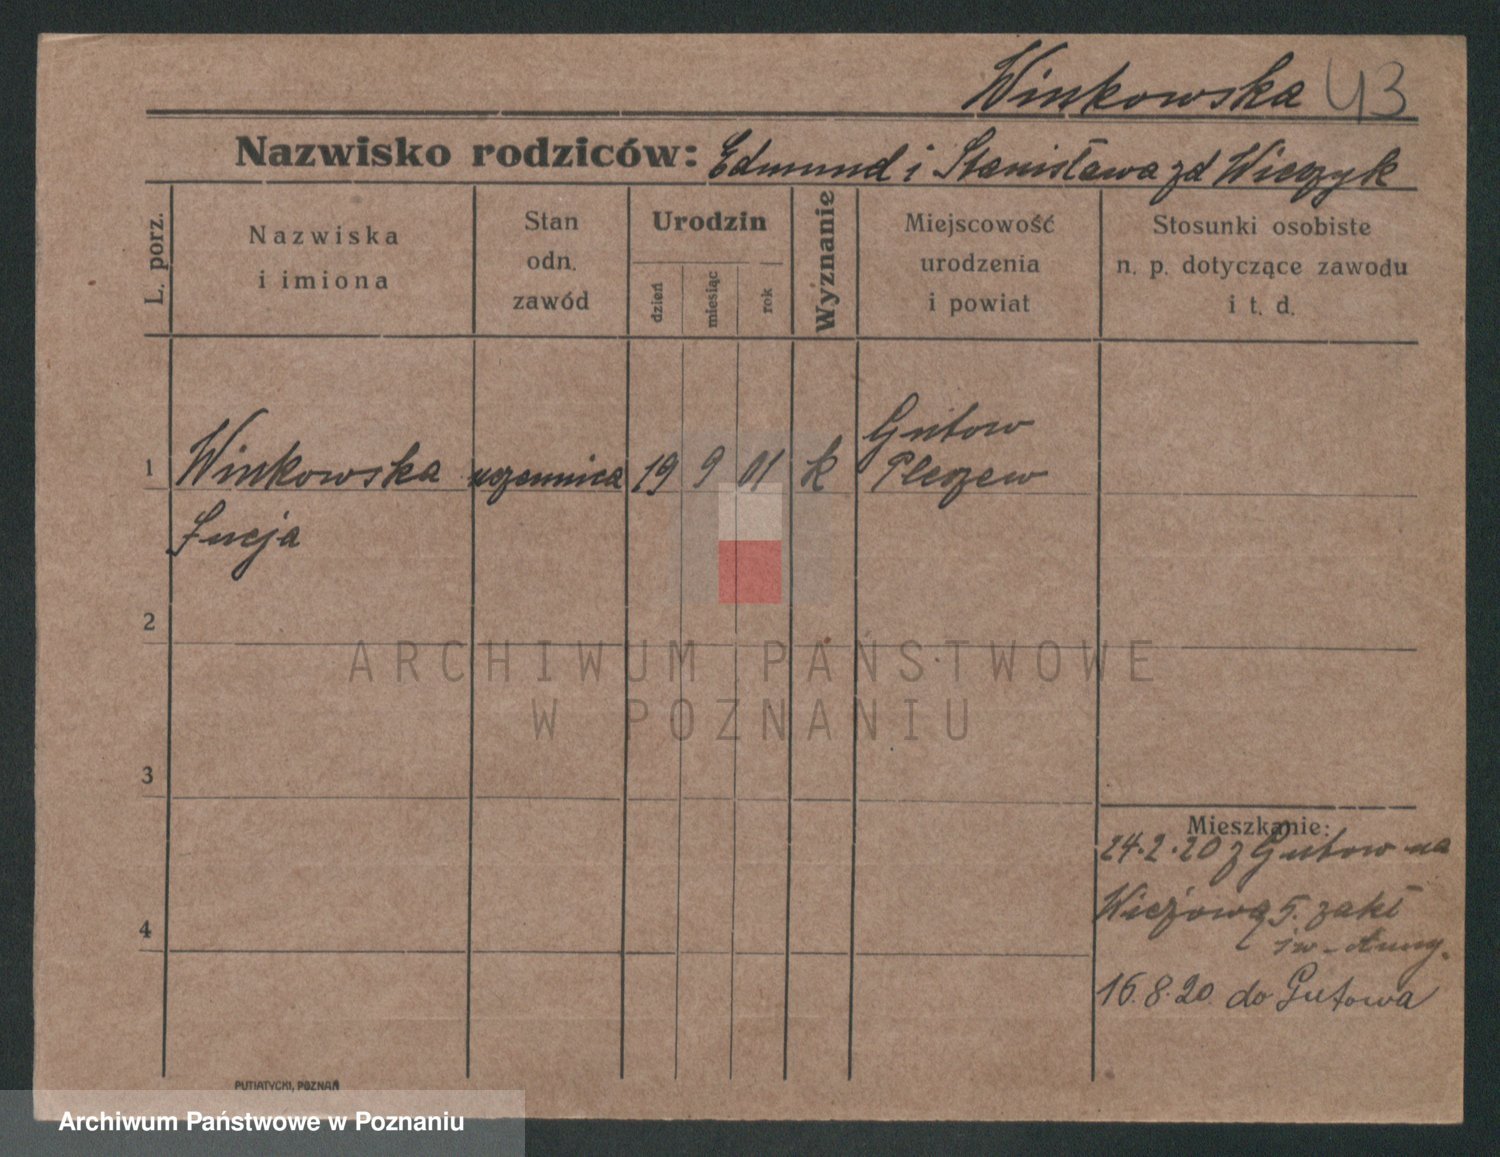 Winkowska 43
Nazwisko rodziców: Edmund i Stanisława zd Wieczyk
L. porz.
Nazwiska
i imiona
Stan
odn.
zawód
Urodzin
dzień
miesiąc
rok
Wyznanie
Miejscowość
urodzenia
i powiat
Stosunki osobiste
n. p. dotyczące zawodu
i t. d.
1 Winkowska uczennica 19 9 01 k Gutow
Pleszew
Łucja
2
3
4
Mieszkanie:
24.2.20 z Gutow na
Wieżową 5. zakł
św. Anny.
16.8.20 do Gutowa
PUTIATYCKI, POZNAŃ
ARCHIWUM PAŃSTWOWE
W POZNANIU
Archiwum Państwowe w Poznaniu